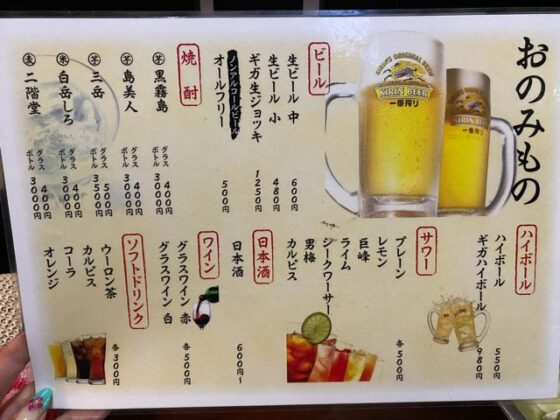 おのみもの
KIRIN BEER
一番搾り
KIRIN BEER
一番搾り
ビール
生ビール 中 600円
生ビール 小 480円
ギガ生ジョッキ 1250円
ノンアルコールビール
オールフリー 500円
焼酎
芋 黒霧島 グラス 400円 ボトル 3000円
芋 島美人 グラス 400円 ボトル 3000円
芋 三岳 グラス 500円 ボトル 3500円
米 白岳しろ グラス 400円 ボトル 3000円
麦 二階堂 グラス 400円 ボトル 3000円
ハイボール
ハイボール 550円
ギガハイボール 980円
サワー
プレーン 各500円
レモン
巨峰
ライム
シークワーサー
男梅
カルピス
日本酒
日本酒 600円～
ワイン
グラスワイン 赤 各500円
グラスワイン 白
ソフトドリンク
ウーロン茶 各300円
カルピス
コーラ
オレンジ